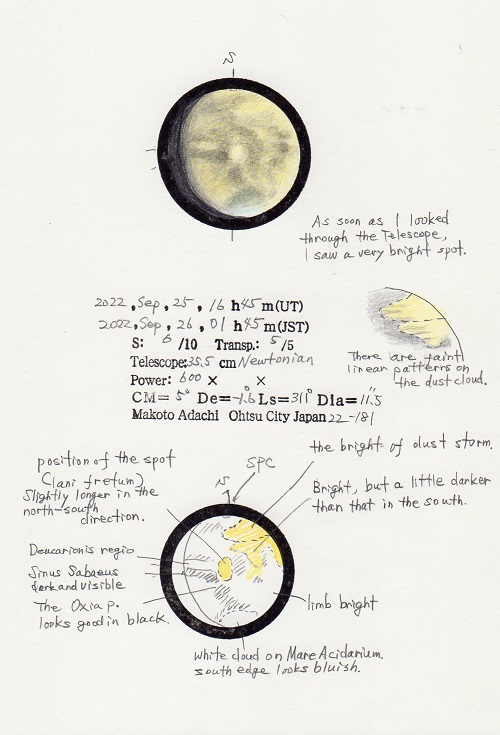 S
As soon as I looked
through the Telescope,
I saw a very bright spot.
2022, Sep, 25, 16 h 45 m(UT)
2022, Sep, 26, 01 h 45 m(JST)
S: 6 /10 Transp.: 5 /5
Telescope: 35.5 cm Newtonian
Power: 600 × ×
CM= 5° De= -1.6 Ls= 311° Dia= 11".5
Makoto Adachi Ohtsu City Japan 22-181
There are faint
linear patterns on
the dust cloud.
the bright of dust storm.
SPC
S
position of the spot
(Iani fretum)
Slightly longer in the
north-south
direction.
Bright, but a little darker
than that in the south.
Deucarionis regio
Sinus Sabaeus
dark and visible
The Oxia p.
looks good in black.
limb bright
white cloud on Mare Acidarium.
south edge looks bluish.